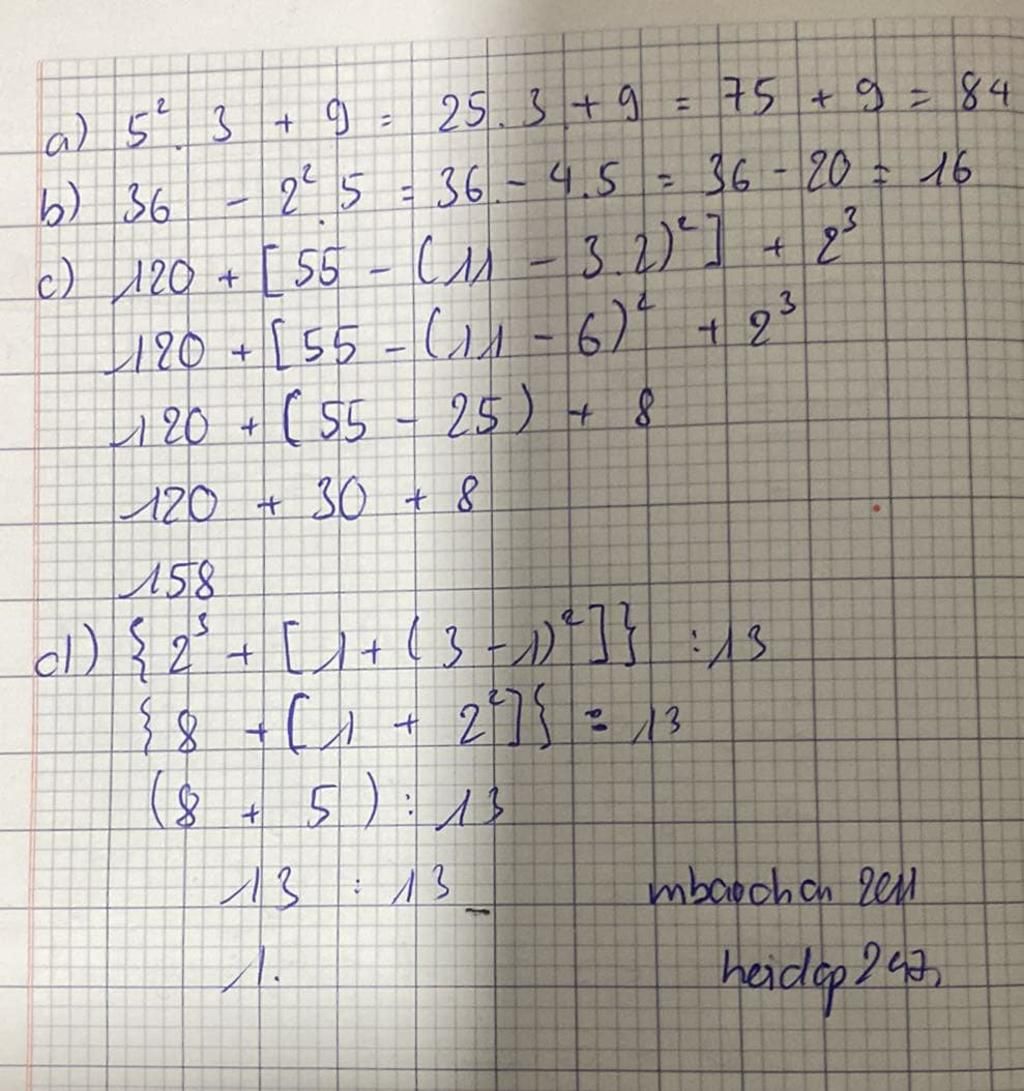 a) 5². 3 + 9 = 25. 3 + 9 = 75 + 9 = 84
b) 36 - 2². 5 = 36 - 4.5 = 36 - 20 = 16
c) 120 + [55 - (11 - 3.2)²] + 2³
120 + [55 - (11 - 6)² + 2³
120 + (55 - 25) + 8
120 + 30 + 8
158
d) {2³ + [1 + (3 - 1)²]} : 13
{8 + [1 + 2²]} = 13
(8 + 5) : 13
13 : 13
1.